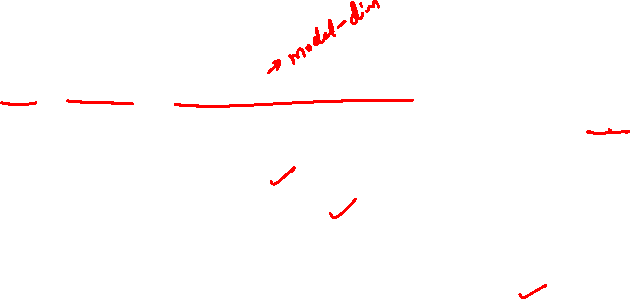 → model-dim